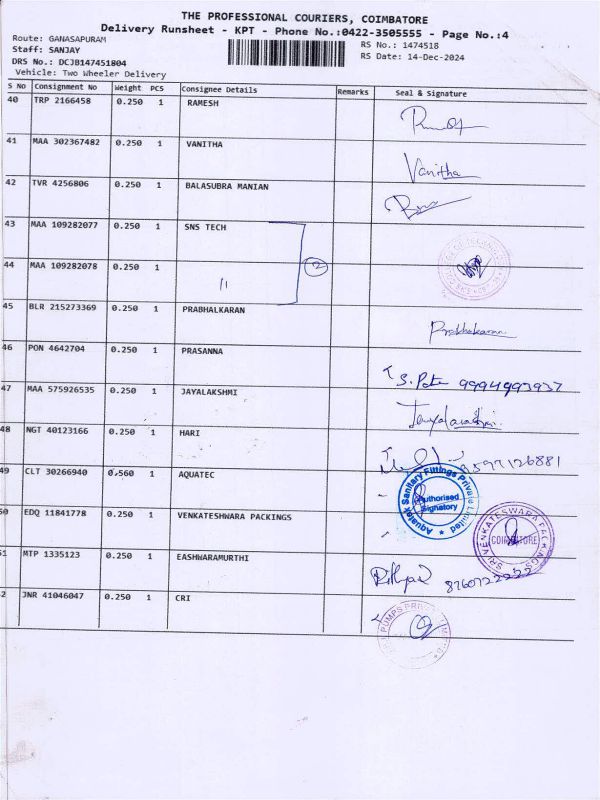 THE PROFESSIONAL COURIERS, COIMBATORE
Delivery Runsheet - KPT - Phone No.:0422-3505555 - Page No.:4
Route: GANASAPURAM RS No.: 1474518
Staff: SANJAY RS Date: 14-Dec-2024
DRS No.: DCJB147451804
Vehicle: Two Wheeler Delivery
S No Consignment No Weight PCS Consignee Details Remarks Seal & Signature
40 TRP 2166458 0.250 1 RAMESH
41 MAA 302367482 0.250 1 VANITHA Vanitha
42 TVR 4256806 0.250 1 BALASUBRA MANIAN
43 MAA 109282077 0.250 1 SNS TECH
2
44 MAA 109282078 0.250 1 11
45 BLR 215273369 0.250 1 PRABHALKARAN Prabhakaran
46 PON 4642704 0.250 1 PRASANNA
47 MAA 575926535 0.250 1 JAYALAKSHMI
48 NGT 40123166 0.250 1 HARI
49 CLT 30266940 0.560 1 AQUATEC
Aquatek Sanitary Fittings Private Limited
Authorised
Signatory
50 EDQ 11841778 0.250 1 VENKATESHWARA PACKINGS
SRI VENKATESWARA PACKINGS
COIMBATORE
51 MTP 1335123 0.250 1 EASHWARAMURTHI
52 JNR 41046047 0.250 1 CRI